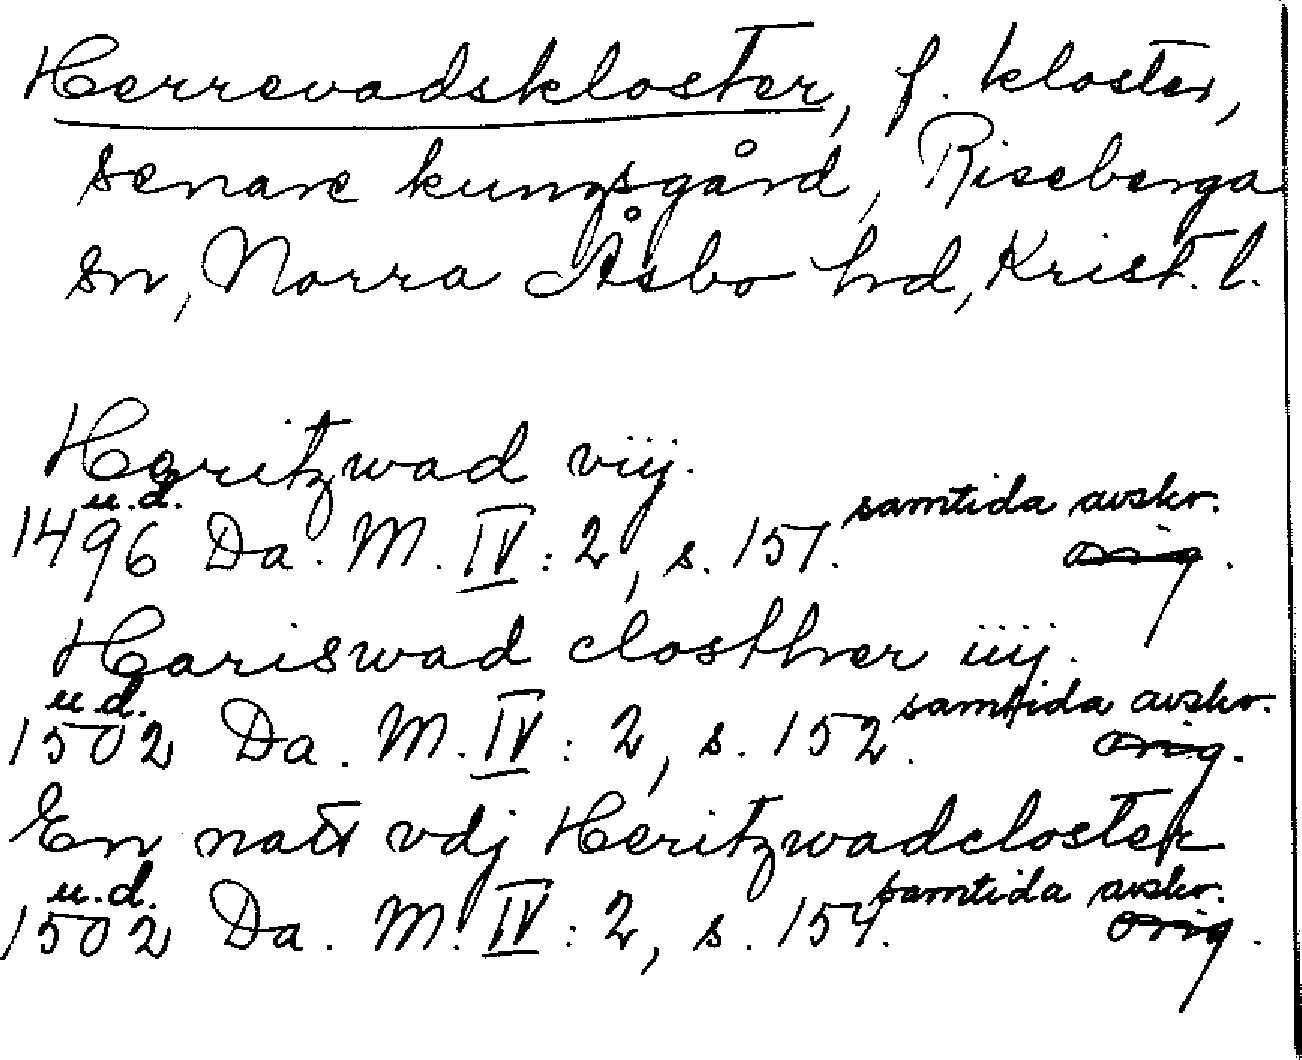 Herrevadskloster, f. kloster,
senare kungsgård, Riseberga
sn, Norra Åsbo hd, Krist. l.
Heritzwad viij.
u.d. samtida avskr.
1496 Da. M. IV: 2, s. 151. orig.
Hariswad closthner iiij.
u.d. samtida avskr.
1502 Da. M. IV: 2, s. 152. orig.
En natt vdj Heritzwadcloster
u.d. samtida avskr.
1502 Da. M. IV: 2, s. 154. orig.